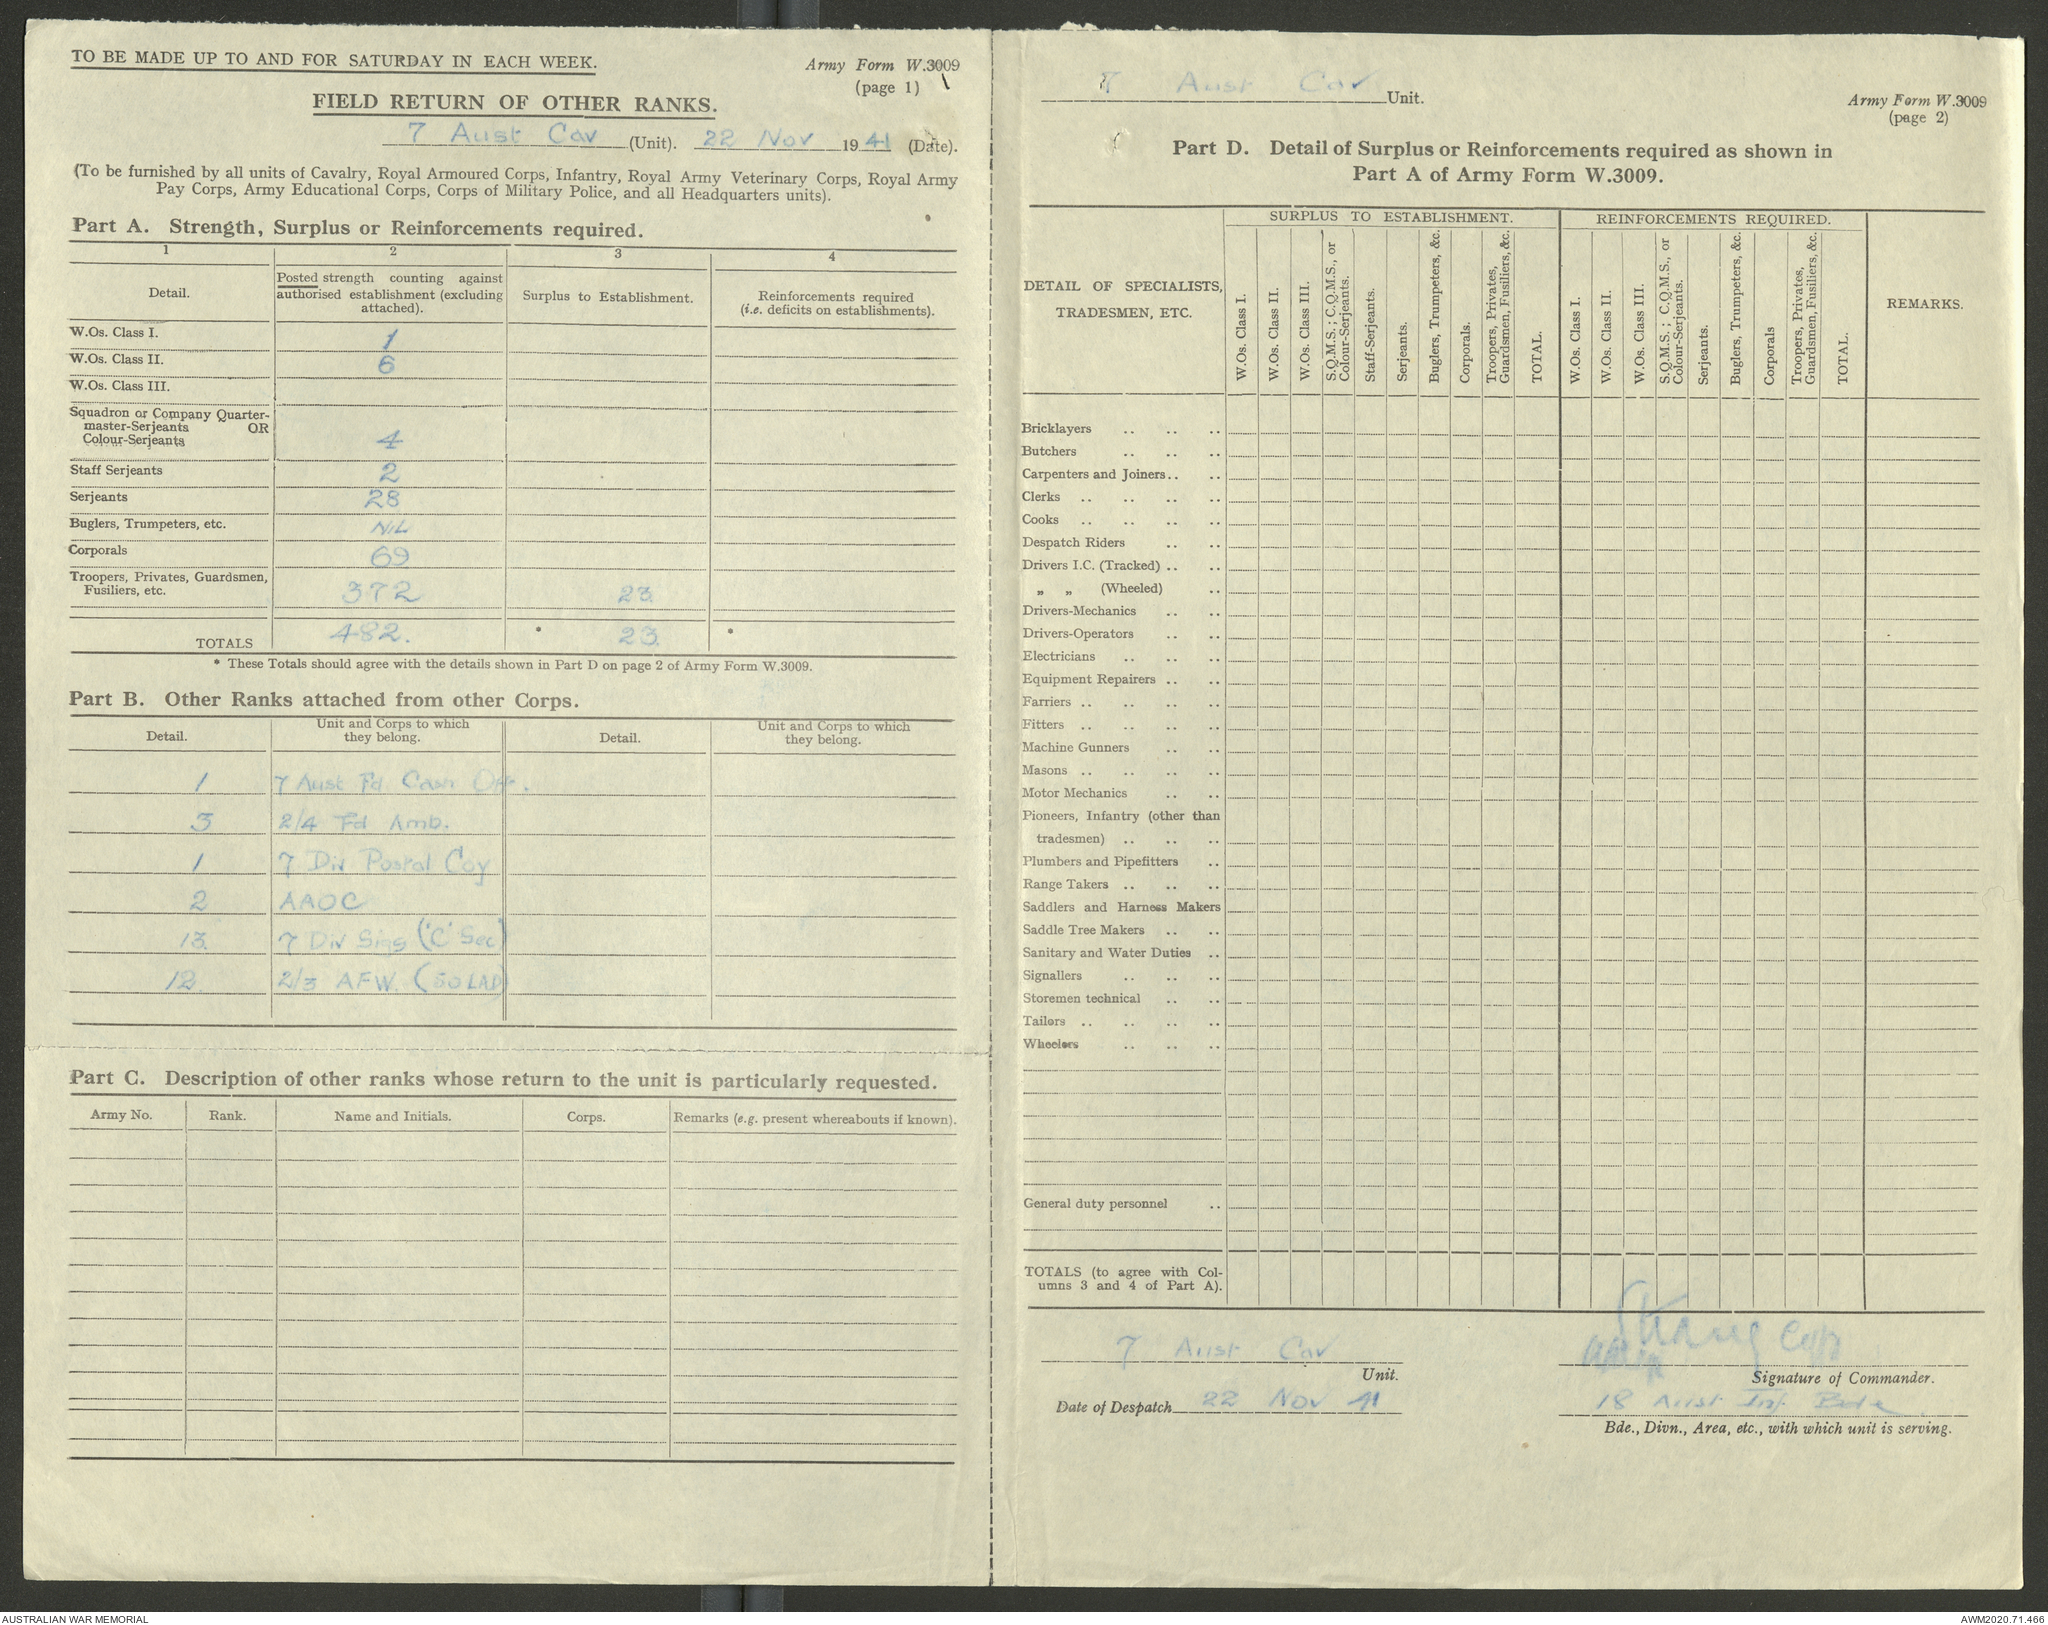 TO BE MADE UP TO AND FOR SATURDAY IN EACH WEEK.
Army Form W.3009
(page 1)
FIELD RETURN OF OTHER RANKS.
7 Aust Cav (Unit). 22 Nov 1941 (Date).
(To be furnished by all units of Cavalry, Royal Armoured Corps, Infantry, Royal Army Veterinary Corps, Royal Army
Pay Corps, Army Educational Corps, Corps of Military Police, and all Headquarters units).
Part A. Strength, Surplus or Reinforcements required.
1 2 3 4
Detail.
Posted strength counting against
authorised establishment (excluding
attached).
Surplus to Establishment.
Reinforcements required
(i.e. deficits on establishments).
W.Os. Class I. 1
W.Os. Class II. 6
W.Os. Class III.
Squadron or Company Quarter-
master-Serjeants OR
Colour-Serjeants 4
Staff Serjeants 2
Serjeants 28
Buglers, Trumpeters, etc. NIL
Corporals 69
Troopers, Privates, Guardsmen,
Fusiliers, etc. 372 23
TOTALS 482. * 23 *
* These Totals should agree with the details shown in Part D on page 2 of Army Form W.3009.
Part B. Other Ranks attached from other Corps.
Detail.
Unit and Corps to which
they belong.
Detail.
Unit and Corps to which
they belong.
1 7 Aust Fd Cash Off.
3 2/4 Fd Amb.
1 7 Div Postal Coy
2 AAOC
13. 7 Div Sigs ('C' Sec)
12. 2/3 AFW. (50 LAD)
Part C. Description of other ranks whose return to the unit is particularly requested.
Army No. Rank. Name and Initials. Corps. Remarks (e.g. present whereabouts if known).
7 Aust Cav Unit.
Army Form W.3009
(page 2)
Part D. Detail of Surplus or Reinforcements required as shown in
Part A of Army Form W.3009.
DETAIL OF SPECIALISTS,
TRADESMEN, ETC.
SURPLUS TO ESTABLISHMENT.
W.Os. Class I.
W.Os. Class II.
W.Os. Class III.
S.Q.M.S.; C.Q.M.S., or
Colour-Serjeants.
Staff-Serjeants.
Serjeants.
Buglers, Trumpeters, &c.
Corporals.
Troopers, Privates,
Guardsmen, Fusiliers, &c.
TOTAL.
REINFORCEMENTS REQUIRED.
W.Os. Class I.
W.Os. Class II.
W.Os. Class III.
S.Q.M.S.; C.Q.M.S., or
Colour-Serjeants.
Serjeants.
Buglers, Trumpeters, &c.
Corporals
Troopers, Privates,
Guardsmen, Fusiliers, &c.
TOTAL.
REMARKS.
Bricklayers .. .. ..
Butchers .. .. ..
Carpenters and Joiners .. ..
Clerks .. .. .. ..
Cooks .. .. .. ..
Despatch Riders .. ..
Drivers I.C. (Tracked) .. ..
„ „ (Wheeled) ..
Drivers-Mechanics .. ..
Drivers-Operators .. ..
Electricians .. .. ..
Equipment Repairers .. ..
Farriers .. .. .. ..
Fitters .. .. .. ..
Machine Gunners .. ..
Masons .. .. .. ..
Motor Mechanics .. ..
Pioneers, Infantry (other than
tradesmen) .. .. ..
Plumbers and Pipefitters ..
Range Takers .. .. ..
Saddlers and Harness Makers
Saddle Tree Makers .. ..
Sanitary and Water Duties ..
Signallers .. .. ..
Storemen technical .. ..
Tailors .. .. .. ..
Wheelers .. .. ..
General duty personnel ..
TOTALS (to agree with Col-
umns 3 and 4 of Part A).
7 Aust Cav
Unit.
Date of Despatch 22 Nov 41
Capt
Signature of Commander.
18 Aust Inf. Bde
Bde., Divn., Area, etc., with which unit is serving.
AUSTRALIAN WAR MEMORIAL
AWM2020.71.466